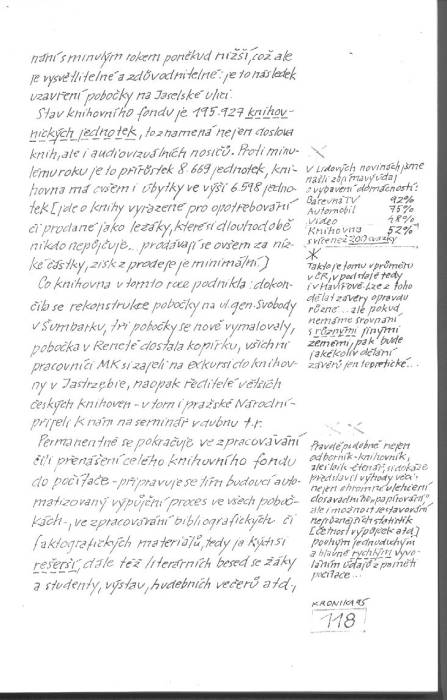 nání s minulým rokem poněkud nižší, což ale
je vysvětlitelné a zdůvodnitelné: je to následek
uzavření pobočky na Jaselské ulici.
Stav knihovního fondu je 195.927 knihov-
nických jednotek, to znamená nejen doslova
knih, ale i audiovizuálních nosičů. Proti minu-
lému roku je to přírůstek 8.669 jednotek, kni-
hovna má ovšem i úbytky ve výši 6.598 jedno-
tek [jde o knihy vyřazené pro opotřebování
či prodané jako ležáky, které si dlouhodobě
nikdo nepůjčuje... prodávají se ovšem za níz-
ké částky, zisk z prodeje je minimální.]
Co knihovna v tomto roce podnikla: dokon-
čila se rekonstrukce pobočky na ul. gen. Svobody
v Šumbarku, tři pobočky se nově vymalovaly,
pobočka v Reneté dostala kopírku, všichni
pracovníci MK si zajeli na exkursi do knihov-
ny v Jastrzębie, naopak ředitelé větších
českých knihoven - v tom i pražské Národní-
přijeli k nám na seminář v dubnu t.r.
Permanentně se pokračuje ve zpracovávání
či přenášení celého knihovního fondu
do počítače - připravuje se tím budoucí auto-
matizovaný výpůjční proces ve všech poboč-
kách-, ve zpracovávání bibliografických či
faktografických materiálů, tedy jakýchsi
rešerší, dále též literárních besed se žáky
a studenty, výstav, hudebních večerů atd.,
V Lidových novinách jsme
našli zajímavý údaj
o vybavení domácností:
Barevná TV 92%
Automobil 75%
Video 48%
Knihovna 52%
s více než 200 svazky
Tak to je tomu v průměru
v ČR, v podstatě tedy
i v Havířově. Lze z toho
dělat závěry opravdu
různé... ale pokud
nemáme srovnání
s různými jinými
zeměmi, pak bude
jakékoliv dělání
závěrů jen teoretické...
Pravděpodobně nejen
odborník - knihovník,
ale i laik - čtenář, si dokáže
představit výhody věci:
nejen ohromné ulehčení
dosavadního „papírování“,
ale i možnost sestavování
nejrůznějších statistik
[četnost výpůjček atd.]
pouhým jednoduchým
a hlavně rychlým vyvo-
láním údajů z paměti
počítače...
KRONIKA 95
118